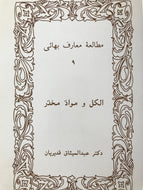 مطالعهٔ معارف بهائی
۹
الکل و مواد مخدّر
دکتر عبدالمیثاق قدیریان